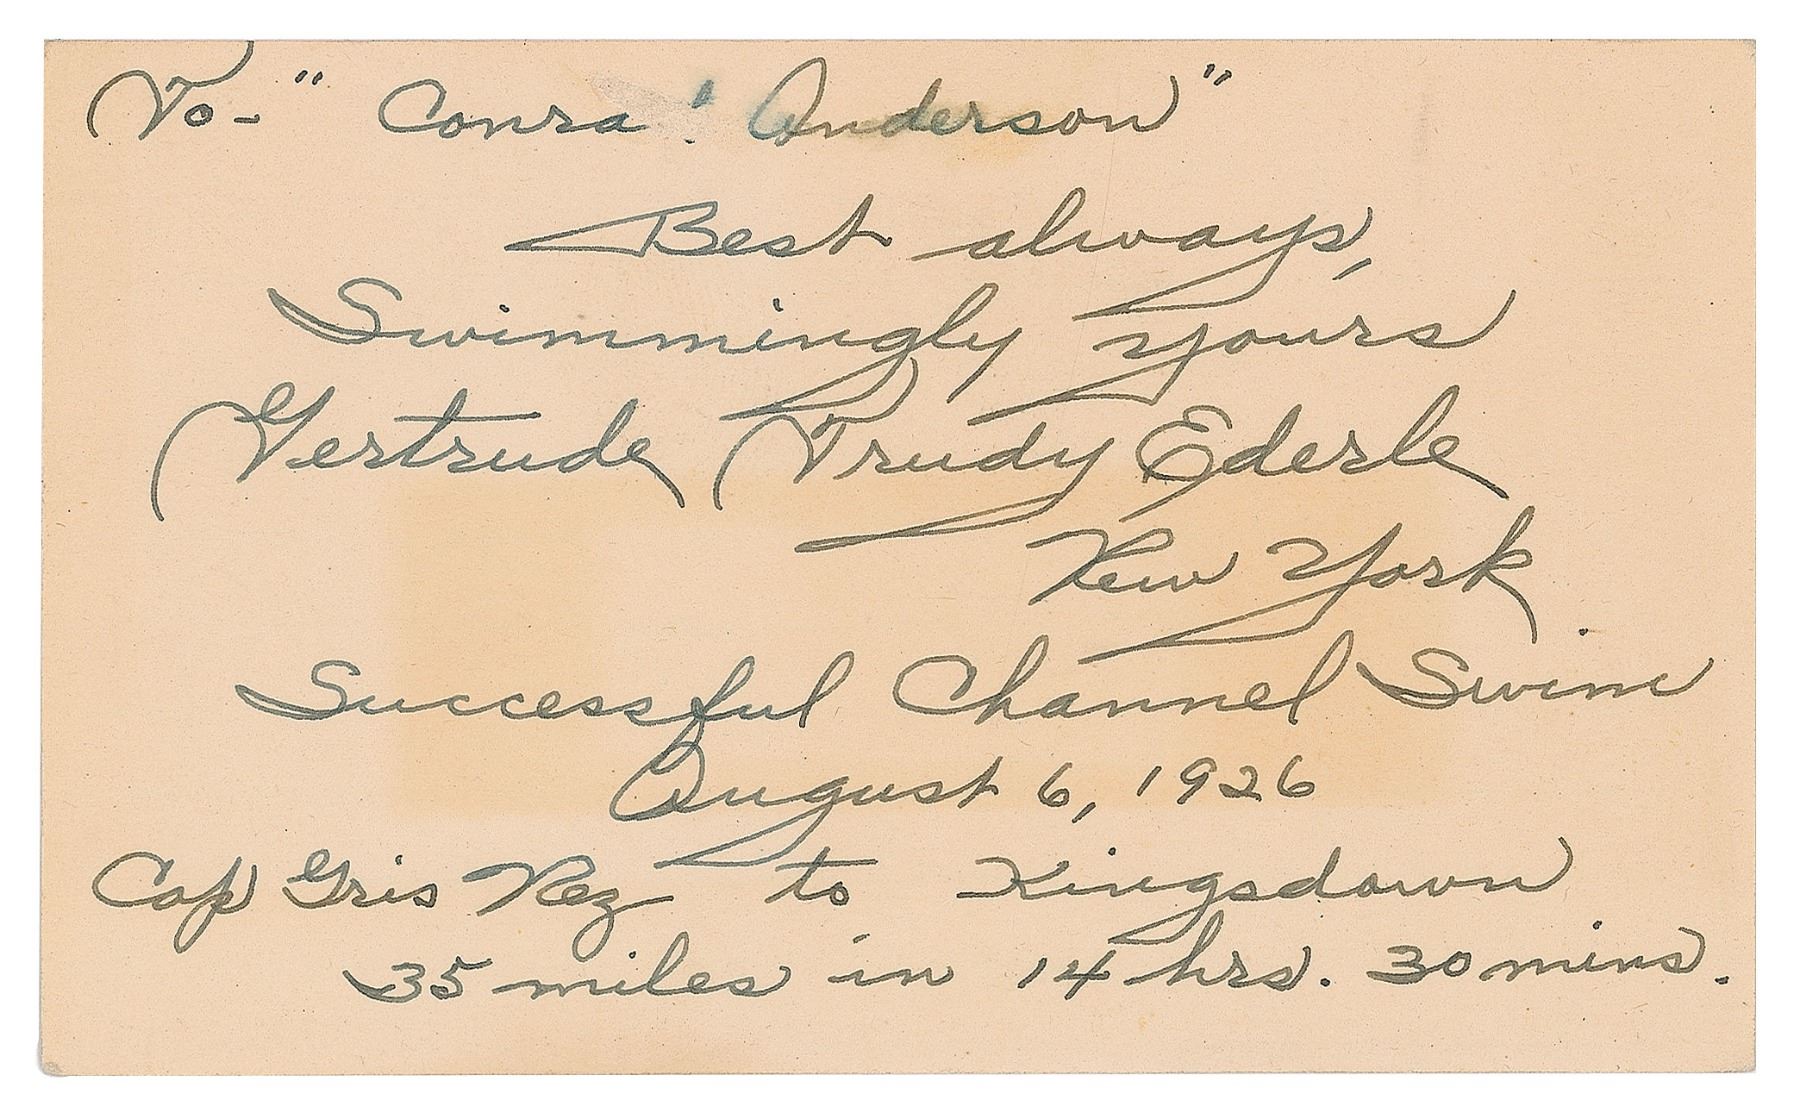 To- " Conra Anderson"
Best always,
Swimmingly yours
Gertrude Trudy Ederle
New York
Successful Channel Swim
August 6, 1926
Cap Gris Nez to Kingsdown
35 miles in 14 hrs. 30 mins.